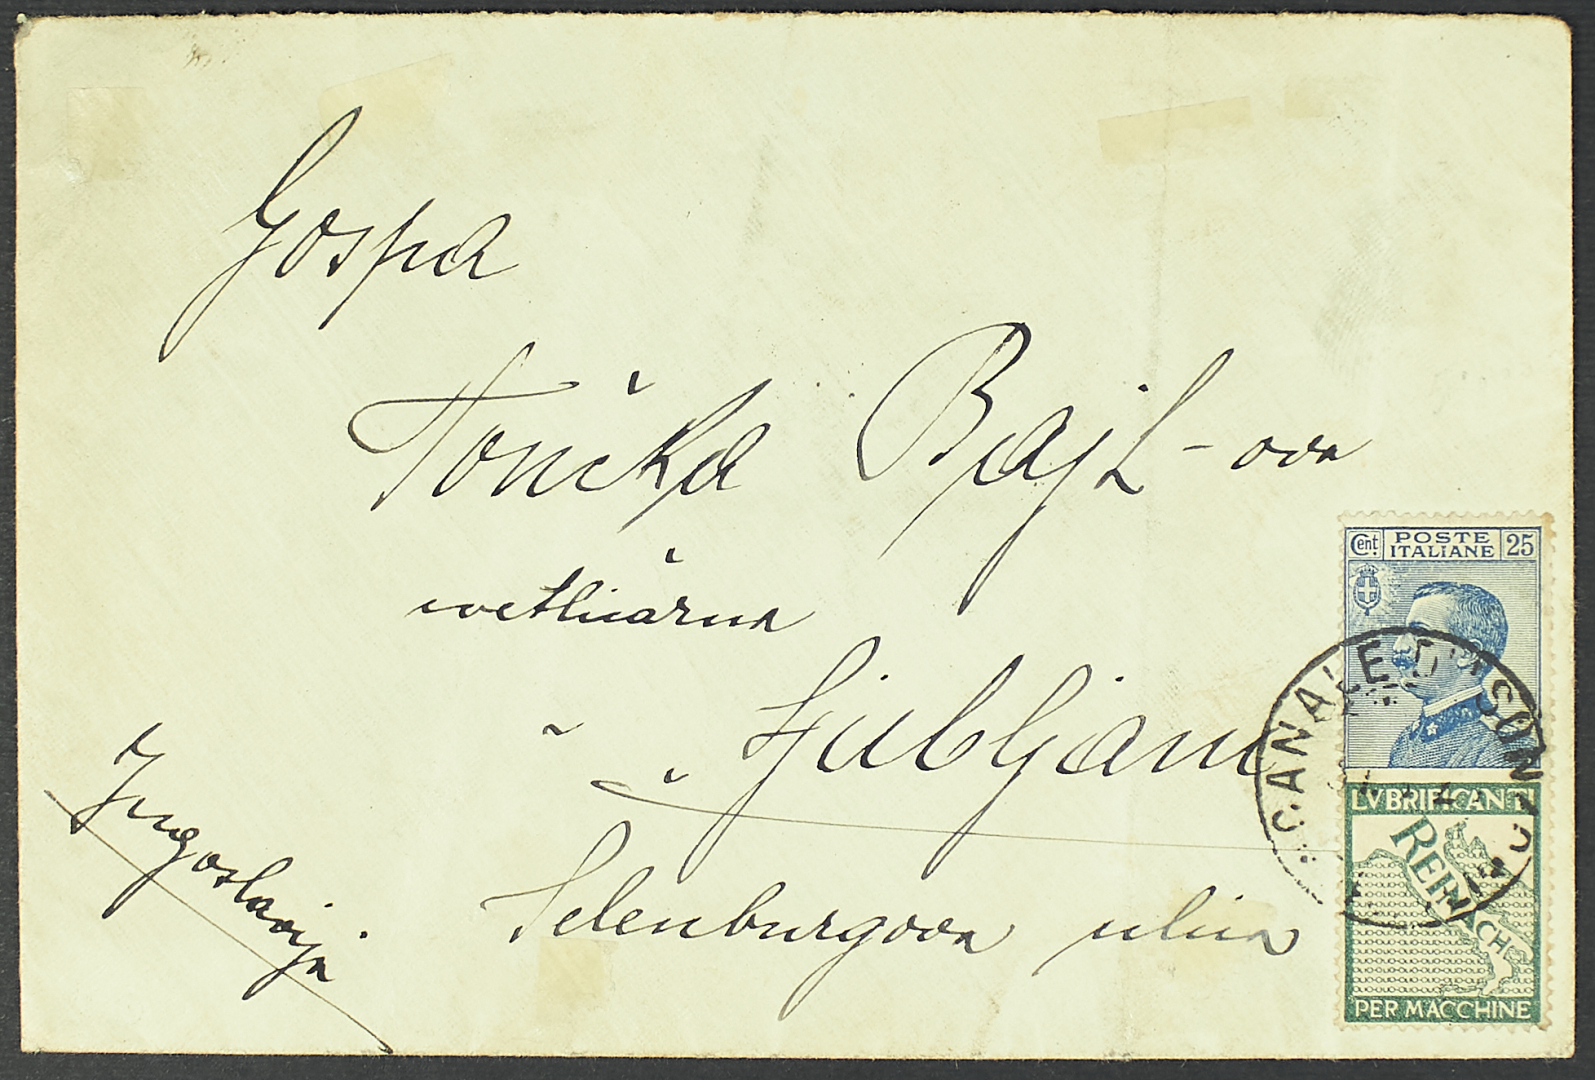 Gospa
Tončka Bajt-ova
v Ljubljani
Selenburgova ulica
Jugoslavija
Cent. POSTE ITALIANE 25
CANALE D'ISONZO
LVBRIFICANTI
REINACH
PER MACCHINE